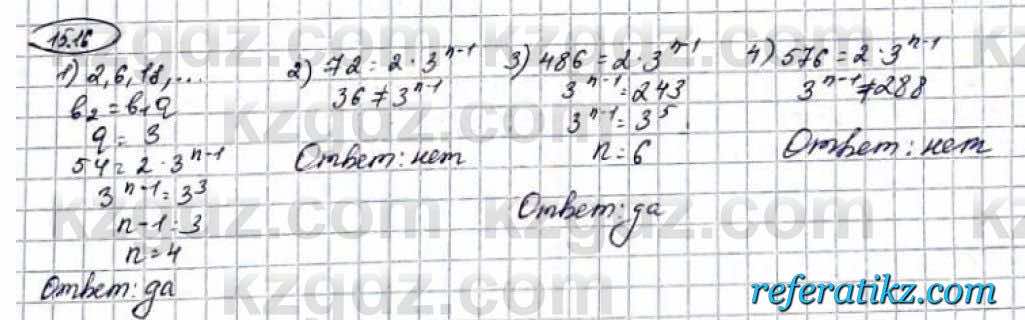 15.16
1) 2, 6, 18, ...
b₂ = b₁q
q = 3
54 = 2 · 3ⁿ⁻¹
3ⁿ⁻¹ = 3³
n-1 = 3
n = 4
Ответ: да
2) 72 = 2 · 3ⁿ⁻¹
36 ≠ 3ⁿ⁻¹
Ответ: нет
3) 486 = 2 · 3ⁿ⁻¹
3ⁿ⁻¹ = 243
3ⁿ⁻¹ = 3⁵
n = 6
Ответ: да
4) 576 = 2 · 3ⁿ⁻¹
3ⁿ⁻¹ ≠ 288
Ответ: нет
kzgdz.com
referatikz.com